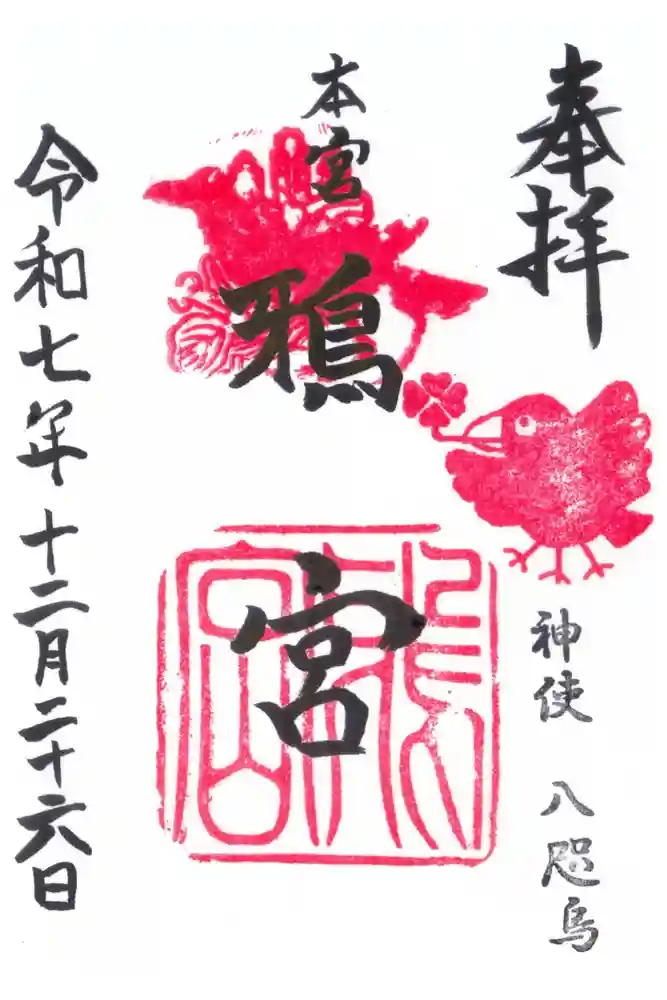 奉拝
神使 八咫烏
本宮
鴉宮
令和七年十二月二十六日